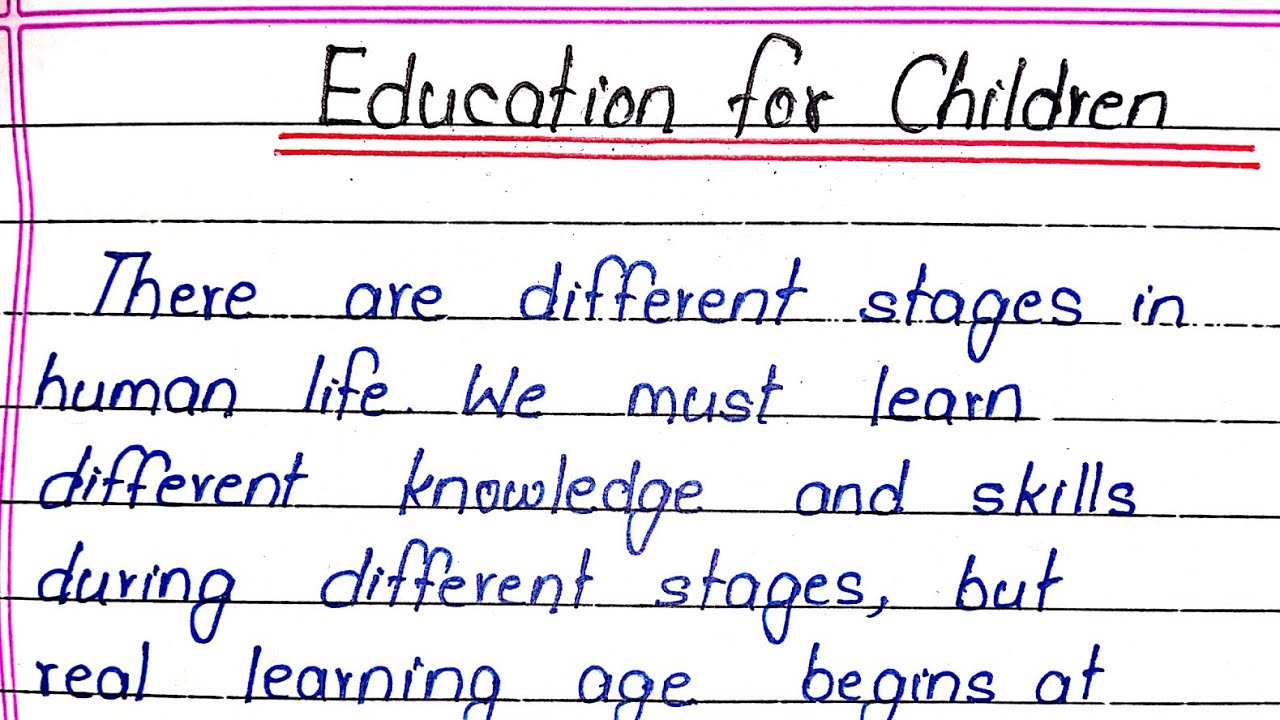 Education for Children
There are different stages in
human life. We must learn
different knowledge and skills
during different stages, but
real learning age begins at